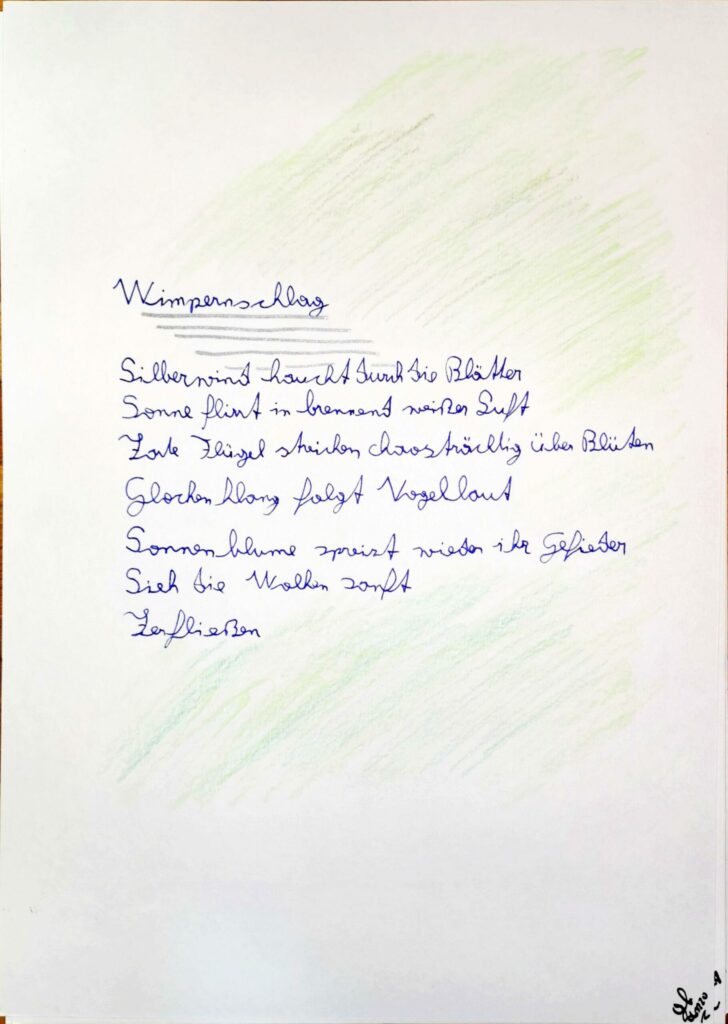 Wimpernschlag
Silberwind haucht durch die Blätter
Sonne flirrt in brennend weißer Luft
Zarte Flügel streichen chaosträchtig über Blüten
Glockenklang folgt Vogellaut
Sonnenblume spreizt wieder ihr Gefieder
Sieh die Wolken sanft
Zerfließen